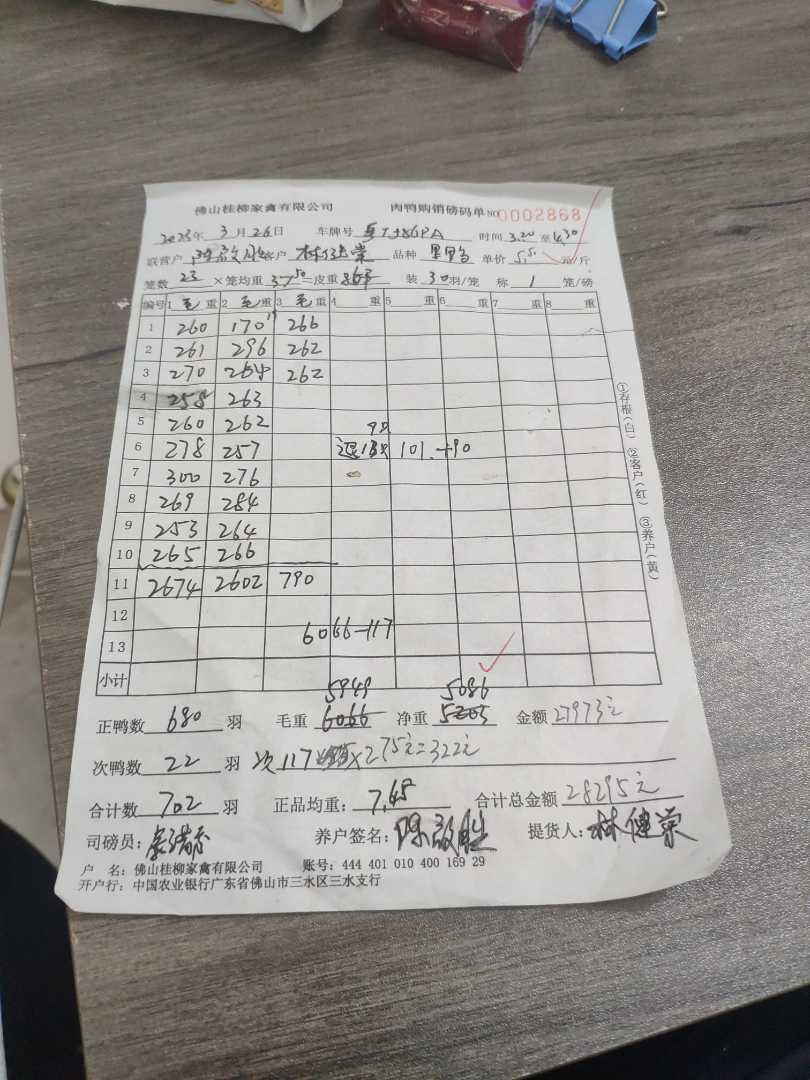 佛山桂柳家禽有限公司 肉鸭购销磅码单 NO 0002868
2025年 3月26日 车牌号 时间 3.20 至 4.30
联营户 陈啟胜 客户 林健荣 品种 单价 5.5 元/斤
笼数 23 ×笼均重 37.50 =皮重 863 装 30 羽/笼 称 1 笼/磅
编号 1 毛 重 2 毛 重 3 毛 重 4 重 5 重 6 重 7 重 8 重
1 260 170 266
2 261 296 262
3 270 264 262
4 258 263
5 260 262
6 278 257 退13只 101.+90
7 300 276
8 269 284
9 253 264
10 265 266
11 2674 2602 790
12
13 6066-117
小计
5949 5086
正鸭数 680 羽 毛重 6066 净重 5203 金额 27973元
次鸭数 22 羽 次117 ×2.75元=322元
合计数 702 羽 正品均重: 7.48 合计总金额 28295元
司磅员: 养户签名: 陈啟胜 提货人: 林健荣
户 名: 佛山桂柳家禽有限公司 账号: 444 401 010 400 169 29
开户行: 中国农业银行广东省佛山市三水区三水支行
①存根(白) ②客户(红) ③养户(黄)